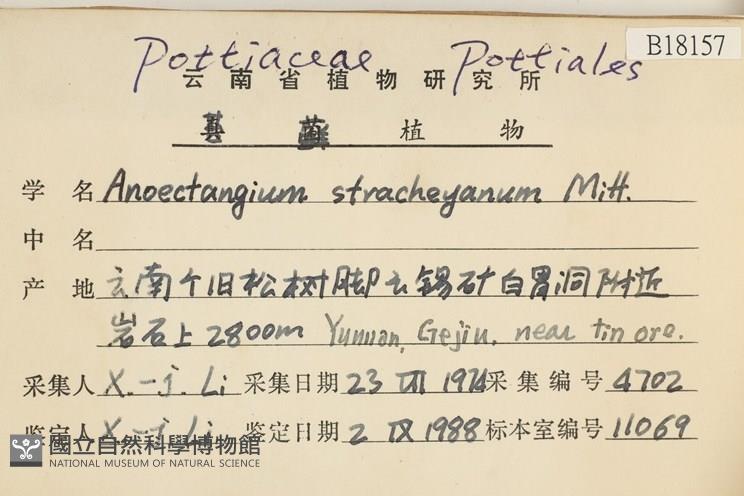 B18157
Pottiaceae Pottiales
云南省植物研究所
植物
学名 Anoectangium stracheyanum Mitt.
中名
产地 云南个旧松树脚云锡矿白胃洞附近
岩石上 2800m Yunnan, Gejiu, near tin ore.
采集人 X.-j. Li 采集日期 23 VII 1974 采集编号 4702
鉴定人 X.-j. Li 鉴定日期 2 IX 1988 标本室编号 11069
國立自然科學博物館
NATIONAL MUSEUM OF NATURAL SCIENCE